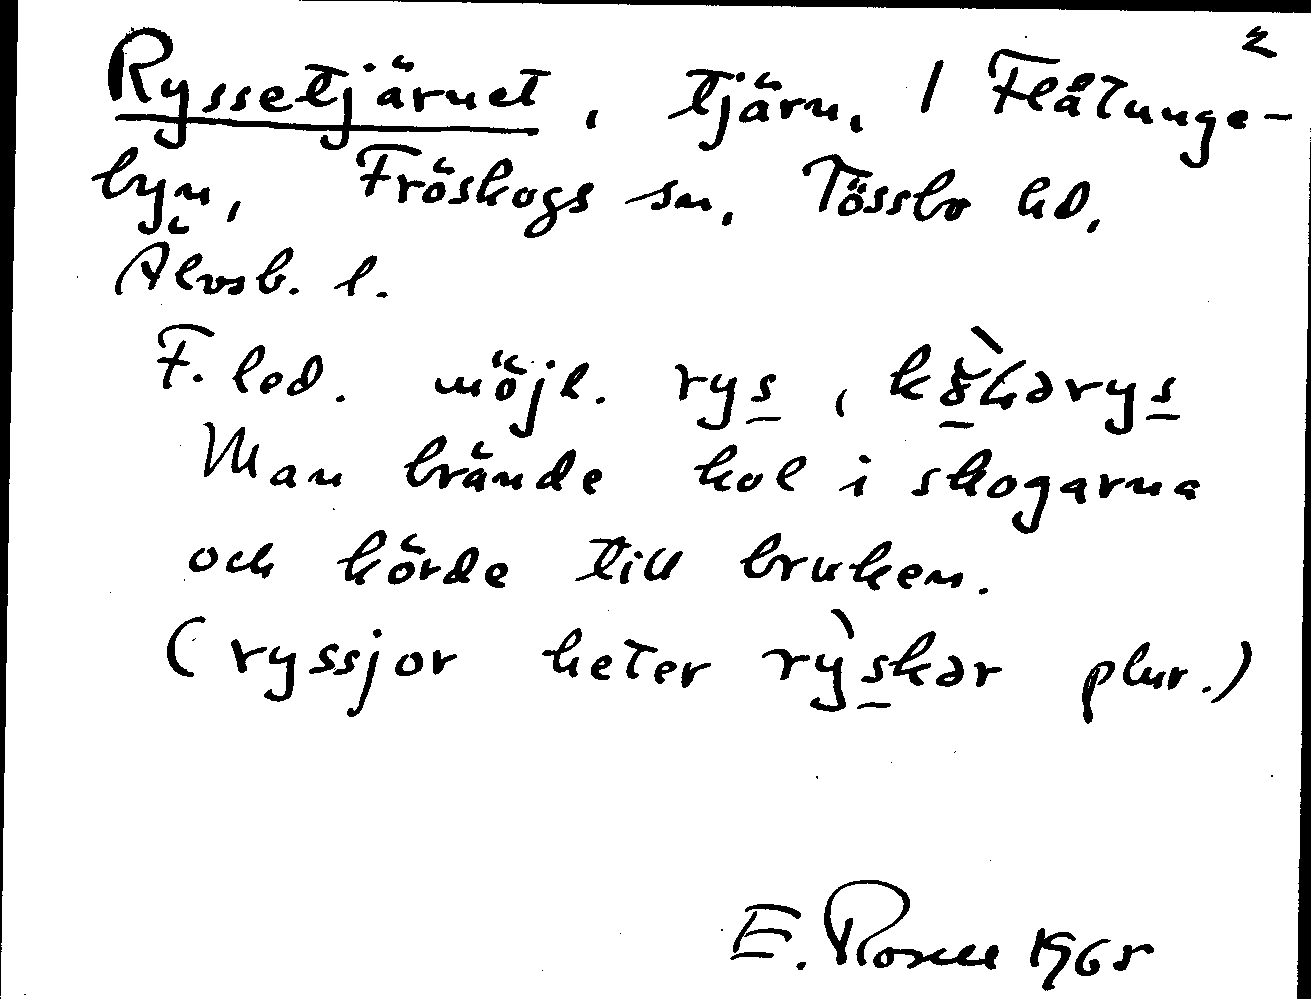 2
Ryssetjärnet, tjärn, / Flåtunge-
byn, Fröskogs sn, Tössbo hd,
Älvsb. l.
F. led. möjl. rys, 
Man brände kol i skogarna
och körde till bruken.
(ryssjor heter rỳskər plur.)
E. Rosell 1965